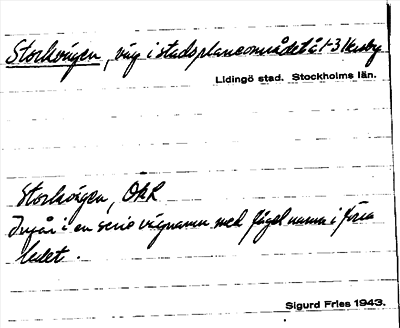 Storkvägen, väg i stadsplaneområdet å 1-3 Kersby
Lidingö stad. Stockholms län.
Storkvägen, OAR
Ingår i en serie vägnamn med fågelnamn i förra
ledet.
Sigurd Fries 1943.